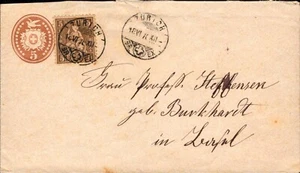 ZÜRICH
ZÜRICH
5
Frau Profess. Steffensen
geb. Burkhardt
in Basel